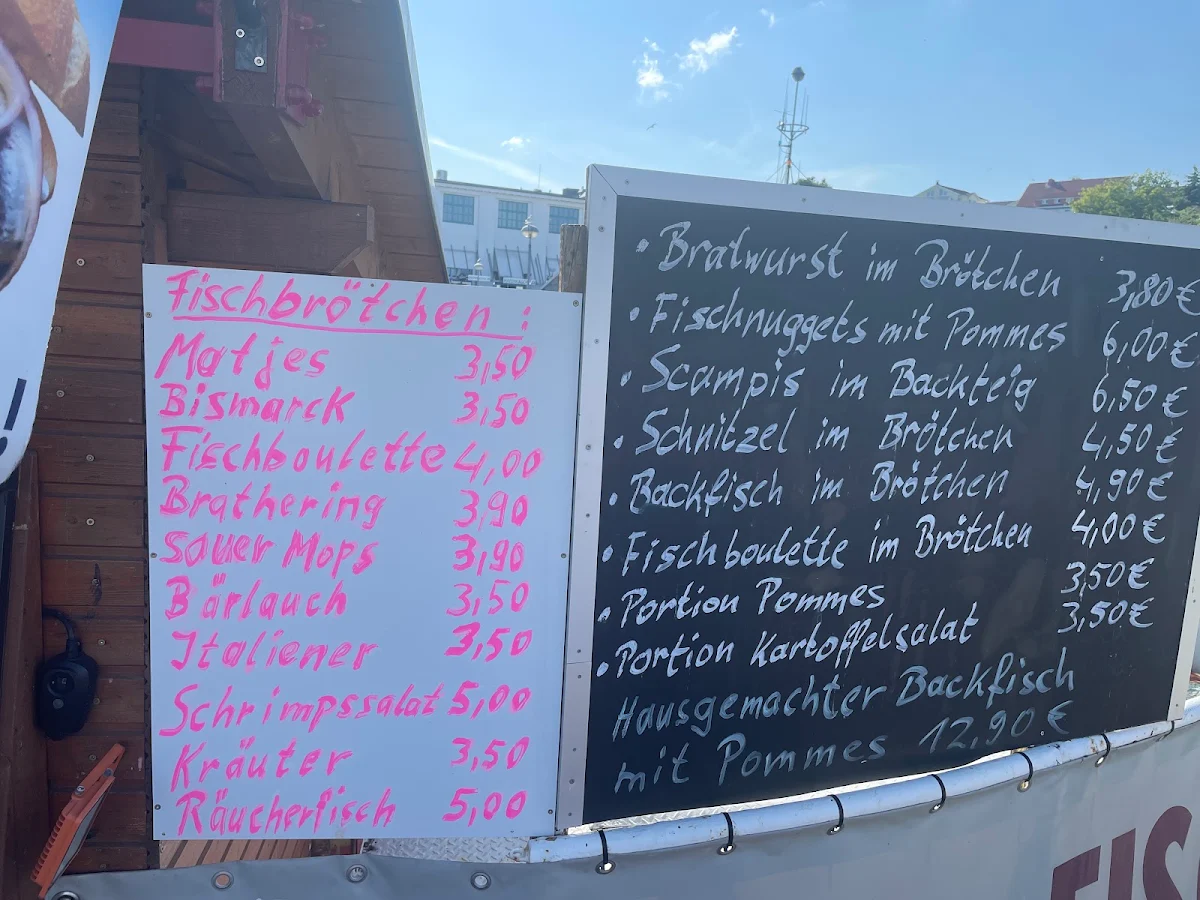 Fischbrötchen :
Matjes 3,50
Bismarck 3,50
Fischboulette 4,00
Brathering 3,90
Sauer Mops 3,90
Bärlauch 3,50
Italiener 3,50
Schrimpssalat 5,00
Kräuter 3,50
Räucherfisch 5,00
• Bratwurst im Brötchen 3,80 €
• Fischnuggets mit Pommes 6,00 €
• Scampis im Backteig 6,50 €
• Schnitzel im Brötchen 4,50 €
• Backfisch im Brötchen 4,90 €
• Fischboulette im Brötchen 4,00 €
• Portion Pommes 3,50 €
• Portion Kartoffelsalat 3,50 €
Hausgemachter Backfisch
mit Pommes 12,90 €